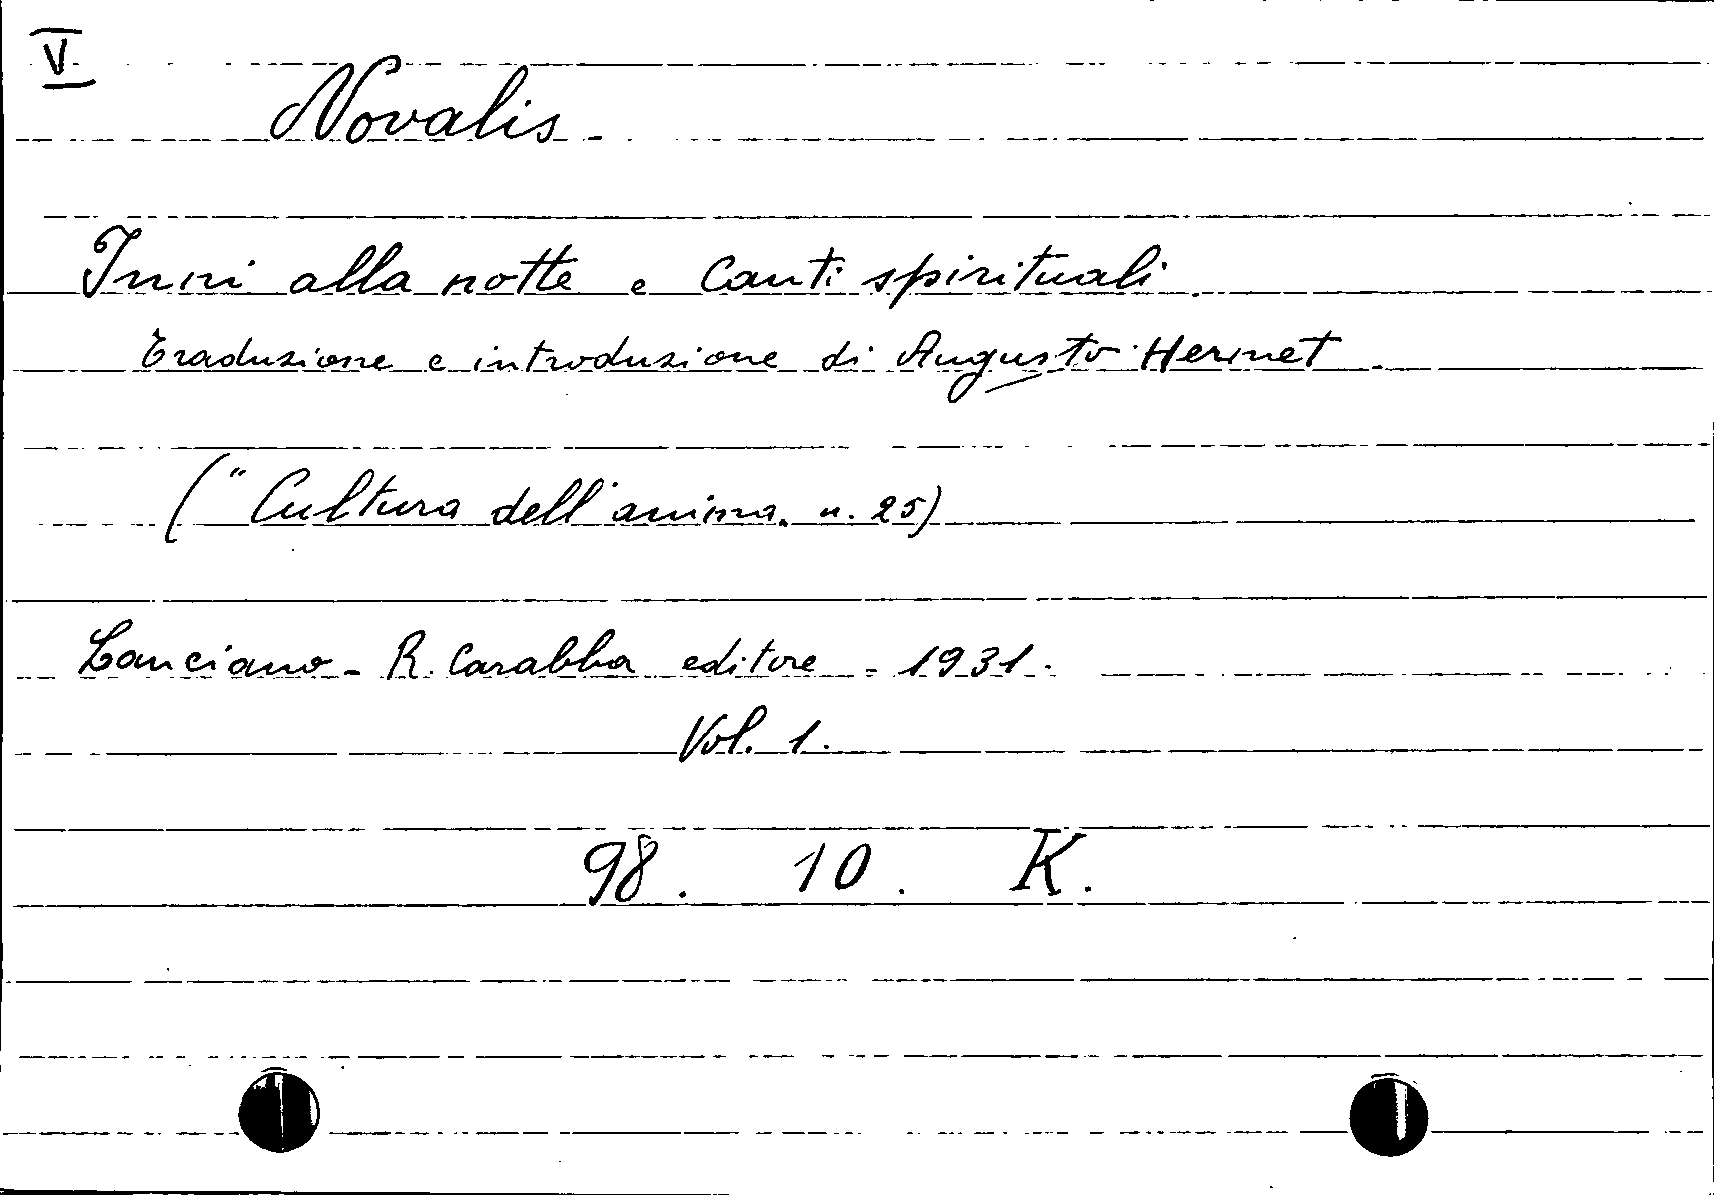 V
Novalis -
Inni alla notte e Canti spirituali.
Traduzione e introduzione di Augusto Hermet.
(" Cultura dell'anima. n. 25)
Lanciano - R. Carabba editore - 1931.
Vol. 1.
98. 10. K.